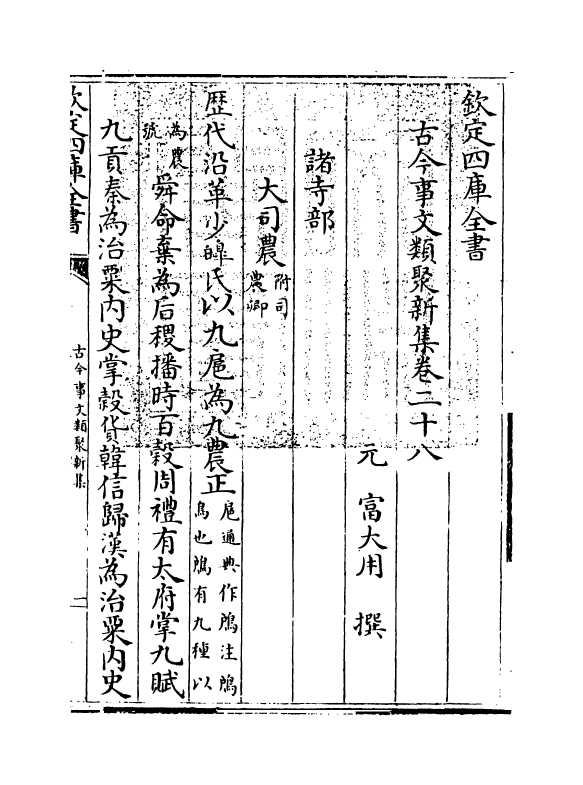 欽定四庫全書
古今事文類聚新集卷二十八
元　富大用　撰
諸寺部
大司農附司農卿
歴代沿革少皥氏以九扈為九農正扈通典作鳸注鳸鳥也鳸有九種以
為農號舜命棄為后稷播時百穀周禮有太府掌九賦
九貢秦為治粟内史掌穀貨韓信歸漢為治粟内史
欽定四庫全書
古今事文類聚新集